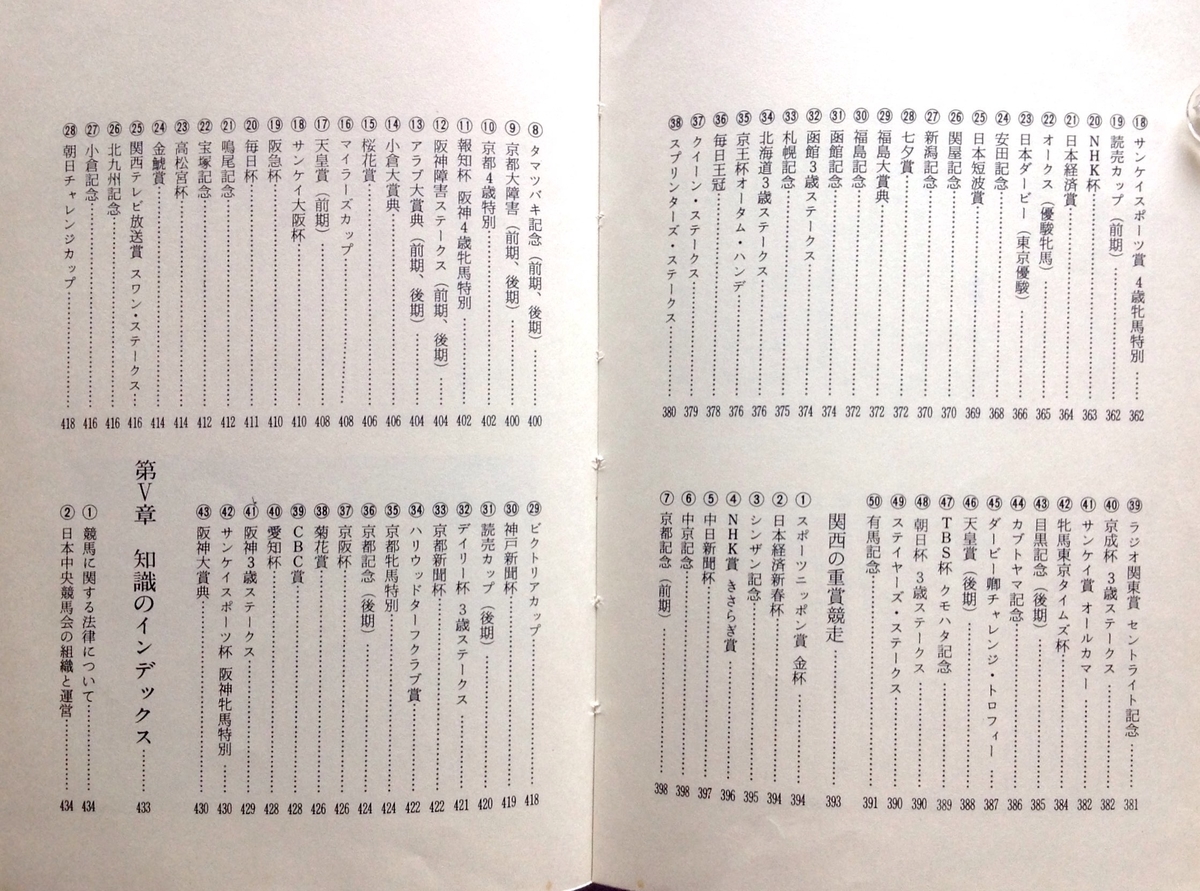 ⑱サンケイスポーツ賞 4歳牝馬特別……362
⑲読売カップ（前期）……362
⑳NHK杯……363
㉑日本経済賞……364
㉒オークス（優駿牝馬）……365
㉓日本ダービー（東京優駿）……366
㉔安田記念……368
㉕日本短波賞……369
㉖関屋記念……370
㉗新潟記念……370
㉘七夕賞……372
㉙福島大賞典……372
㉚福島記念……372
㉛函館記念……374
㉜函館3歳ステークス……374
㉝札幌記念……375
㉞北海道3歳ステークス……376
㉟京王杯オータム・ハンデ……376
㊱毎日王冠……378
㊲クイーン・ステークス……379
㊳スプリンターズ・ステークス……380
㊴ラジオ関東賞 セントライト記念……381
㊵京成杯 3歳ステークス……382
㊶サンケイ賞 オールカマー……382
㊷牝馬東京タイムズ杯……384
㊸目黒記念（後期）……385
㊹カブトヤマ記念……386
㊺ダービー卿チャレンジ・トロフィー……387
㊻天皇賞（後期）……388
㊼TBS杯 クモハタ記念……389
㊽朝日杯 3歳ステークス……390
㊾ステイヤーズ・ステークス……390
㊿有馬記念……391
関西の重賞競走……393
①スポーツニッポン賞 金杯……394
②日本経済新春杯……394
③シンザン記念……395
④NHK賞 きさらぎ賞……396
⑤中日新聞杯……397
⑥中京記念……398
⑦京都記念（前期）……398
⑧タマツバキ記念（前期、後期）……400
⑨京都大障害（前期、後期）……400
⑩京都4歳特別……402
⑪報知杯 阪神4歳牝馬特別……402
⑫阪神障害ステークス（前期、後期）……404
⑬アラブ大賞典（前期、後期）……404
⑭小倉大賞典……406
⑮桜花賞……406
⑯マイラーズカップ……408
⑰天皇賞（前期）……408
⑱サンケイ大阪杯……410
⑲阪急杯……410
⑳毎日杯……411
㉑鳴尾記念……412
㉒宝塚記念……412
㉓高松宮杯……414
㉔金鯱賞……414
㉕関西テレビ放送賞 スワン・ステークス……416
㉖北九州記念……416
㉗小倉記念……416
㉘朝日チャレンジカップ……418
㉙ビクトリアカップ……418
㉚神戸新聞杯……419
㉛読売カップ（後期）……420
㉜デイリー杯 3歳ステークス……421
㉝京都新聞杯……422
㉞ハリウッドターフクラブ賞……422
㉟京都牝馬特別……424
㊱京都記念（後期）……424
㊲京阪杯……424
㊳菊花賞……426
㊴CBC賞……428
㊵愛知杯……428
㊶阪神3歳ステークス……429
㊷サンケイスポーツ杯 阪神牝馬特別……430
㊸阪神大賞典……430
第V章 知識のインデックス……433
①競馬に関する法律について……434
②日本中央競馬会の組織と運営……434